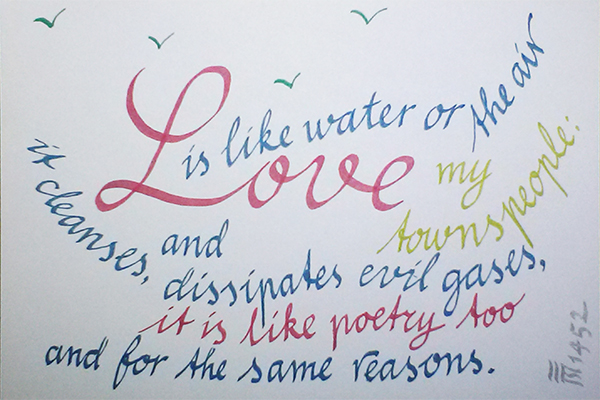 Love
is like water or the air
my
townspeople:
it cleanses,
and
dissipates evil gases,
it is like poetry too
and for the same reasons.
1452